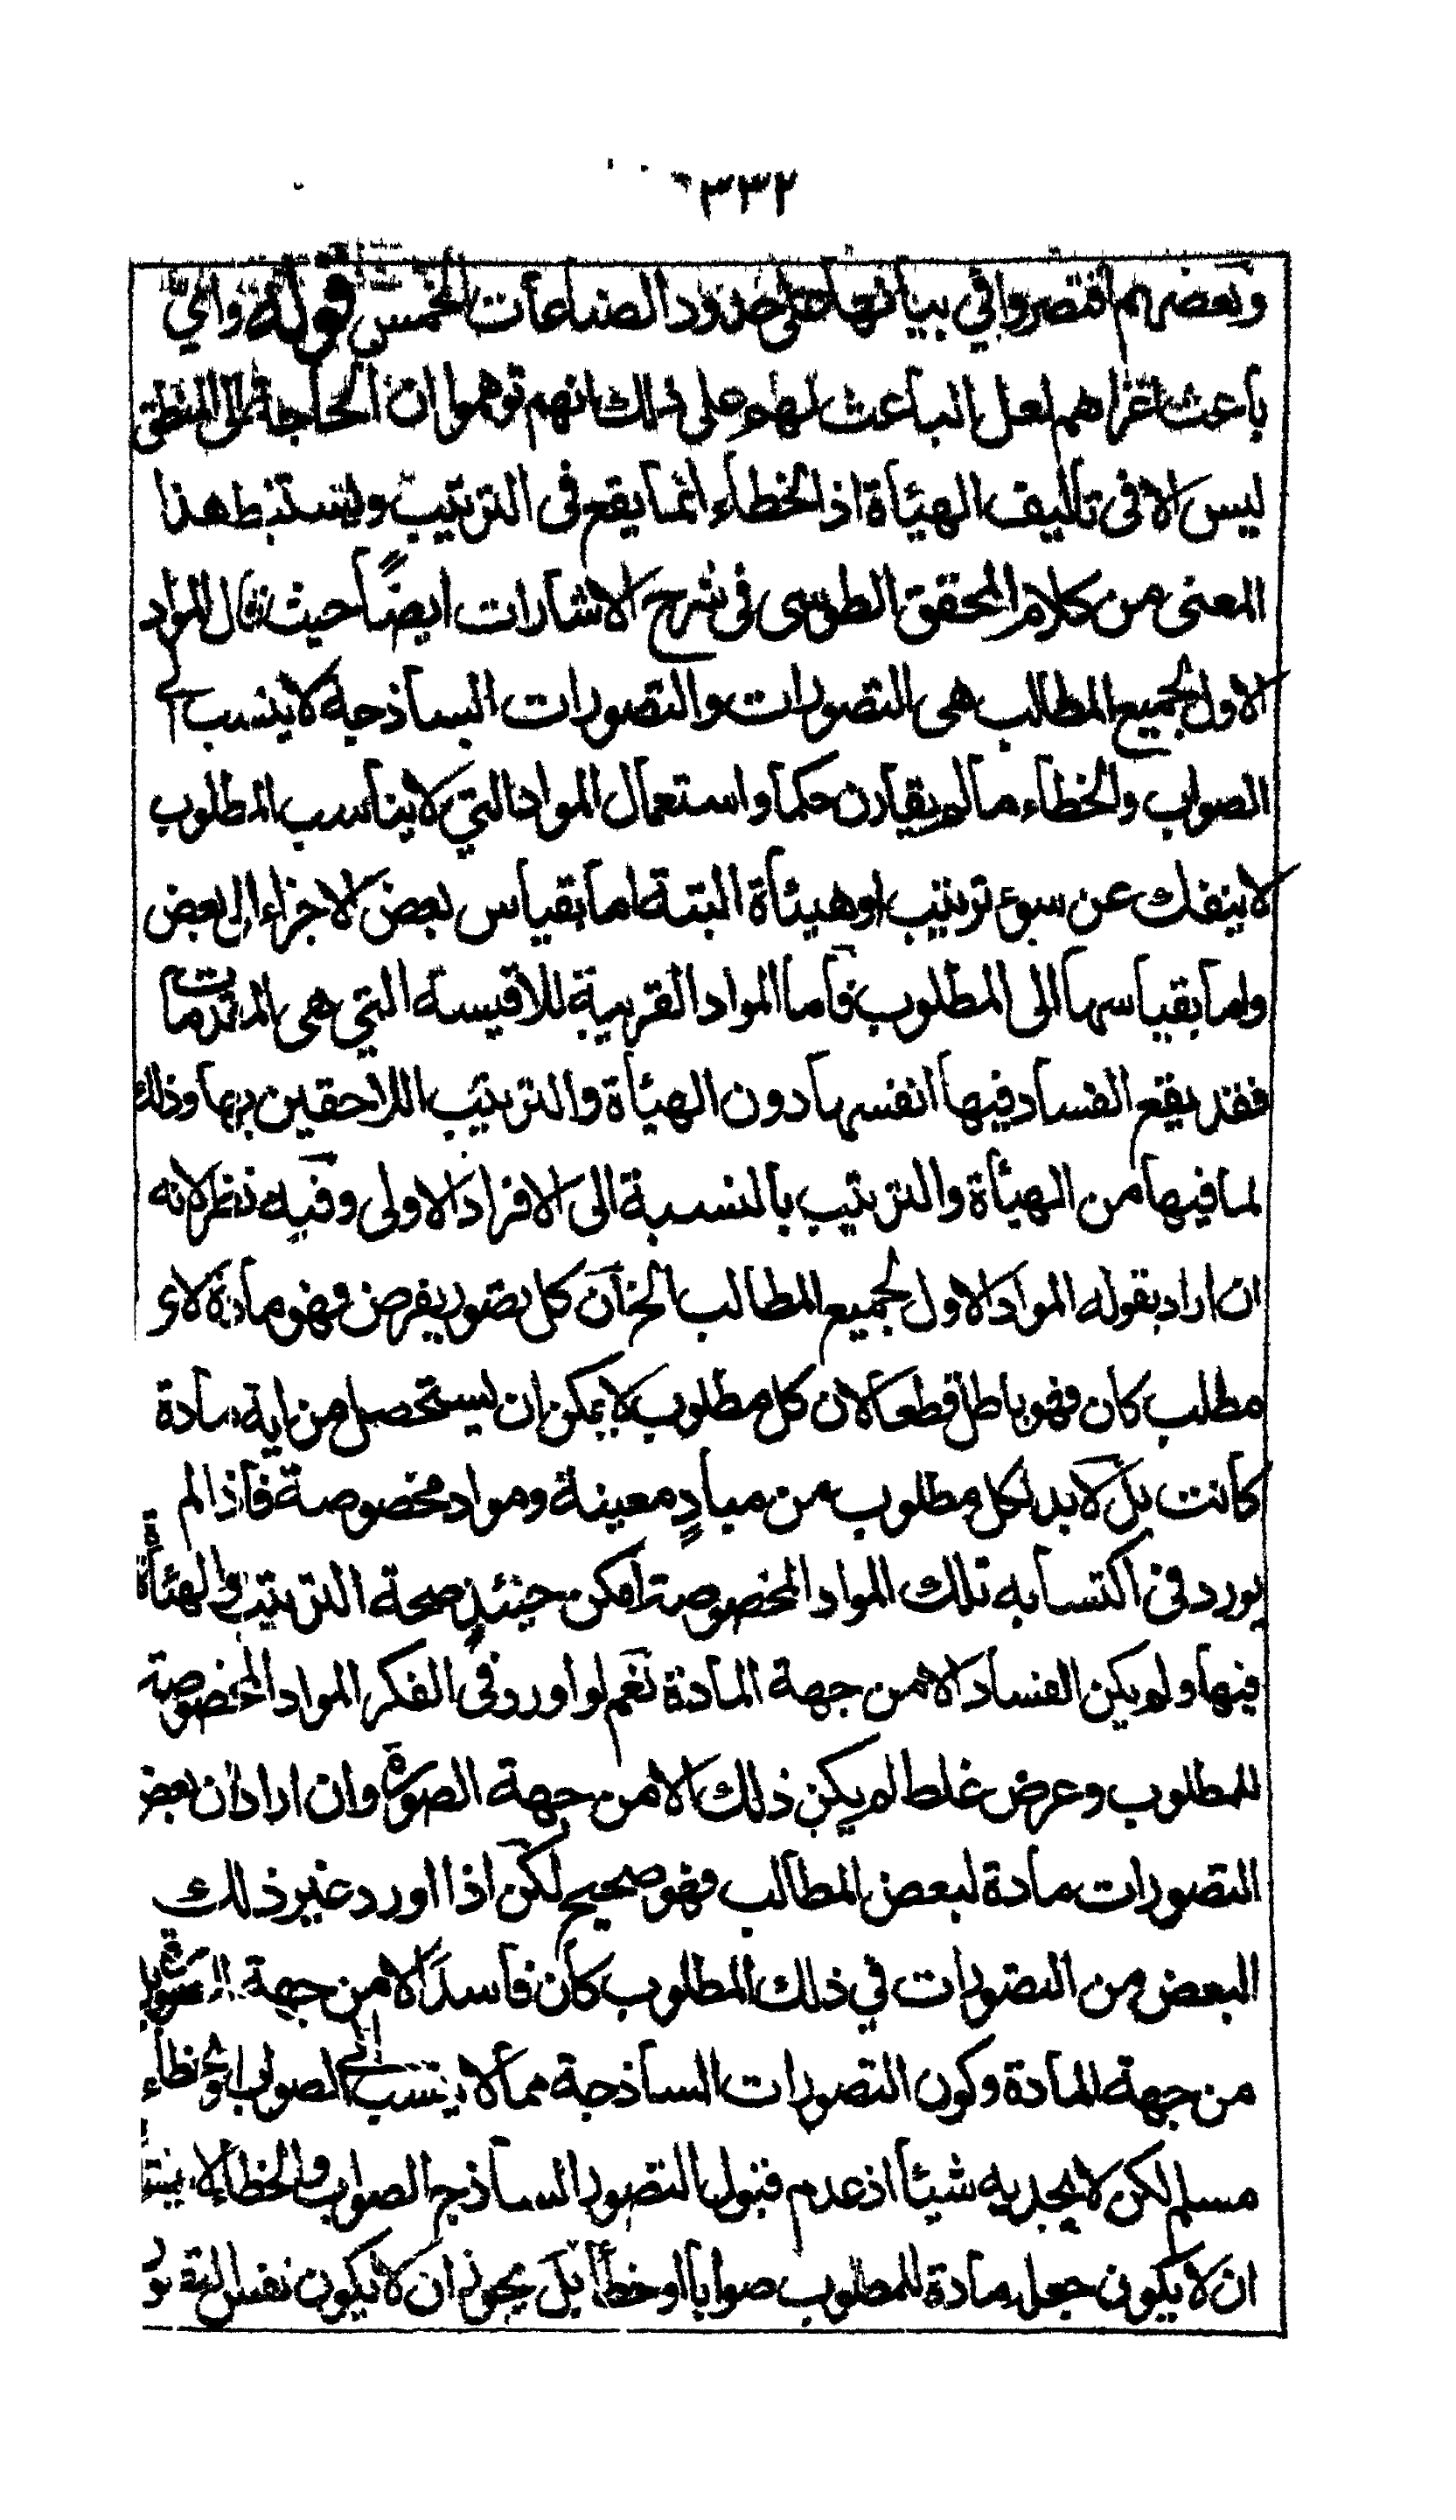 ٣٣٢
وبعضهم اقتصروا في بيانها على حدود الصناعات الخمس قوله واي
باعث اغراهم لعل الباعث لهم على ذلك انهم توهموا ان الحاجة الى المنطق
ليس الا فى تاليف الهيئاة اذ الخطاء انما يقع فى الترتيب ويستنبط هذا
المعنى من كلام المحقق الطوسى فى شرح الاشارات ايضًا حيث قال المواد
الاول لجميع المطالب هى التصورات والتصورات الساذجة لا ينسب الى
الصواب والخطاء ما لم يقارن حكما واستعمال المواد التي لا يناسب المطلوب
لا ينفك عن سوء ترتيب او هيئاة البتة اما بقياس بعض الاجزاء الى بعض
واما بقياسها الى المطلوب فاما المواد القريبة للاقيسة التي هى المقدمات
فقد يقع الفساد فيها انفسها دون الهيئاة والترتيب اللاحقين بها وذلك
لما فيها من الهيئاة والترتيب بالنسبة الى الافراد الاولى وفيه نظر لانه
ان اراد بقوله المواد الاول لجميع المطالب الخ ان كل تصور يفرض فهو مادة لاى
مطلب كان فهو باطل قطعا لان كل مطلوب لا يمكن ان يستحصل من اية مادة
كانت بل لا بد لكل مطلوب من مبادٍ معينة ومواد مخصوصة فاذا لم
يورد فى اكتسابه تلك المواد المخصوصة امكن حينئذٍ صحة الترتيب والهيئاة
فيها ولم يكن الفساد الا من جهة المادة نعم لو اورد فى الفكر المواد المخصوصة
للمطلوب وعرض غلط لم يكن ذلك الا من جهة الصورة وان اراد ان بعض
التصورات مادة لبعض المطالب فهو صحيح لكن اذا اورد غير ذلك
البعض من التصورات في ذلك المطلوب كان فاسدًا لا من جهة الصورة بل
من جهة المادة وكون التصورات الساذجة مما لا ينسب الى الصواب والخطاء
مسلم لكن لا يجديه شيئا اذ عدم قبول التصور الساذج الصواب والخطاء لا
ان لا يكون جعله مادة للمطلوب صوابا او خطأ بل يجوز ان لا يكون نفس التصور